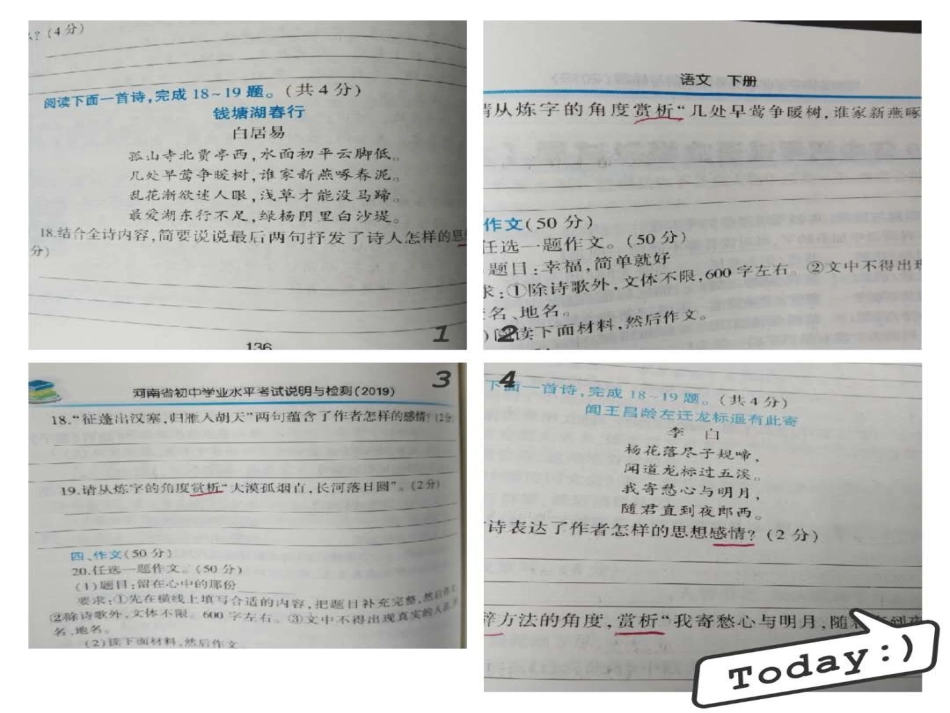 ？(4分)
阅读下面一首诗,完成18~19题。(共4分)
钱塘湖春行
白居易
孤山寺北贾亭西,水面初平云脚低。
几处早莺争暖树,谁家新燕啄春泥。
乱花渐欲迷人眼,浅草才能没马蹄。
最爱湖东行不足,绿杨阴里白沙堤。
18.结合全诗内容,简要说说最后两句抒发了诗人怎样的思
分)
136
1
语文 下册
请从炼字的角度赏析“几处早莺争暖树,谁家新燕啄
作文(50分)
任选一题作文。(50分)
题目:幸福,简单就好
求:①除诗歌外,文体不限,600字左右。②文中不得出现
名、地名。
)阅读下面材料,然后作文。
2
河南省初中学业水平考试说明与检测(2019)
3
18.“征蓬出汉塞,归雁入胡天”两句蕴含了作者怎样的感情?(2分
19.请从炼字的角度赏析“大漠孤烟直,长河落日圆”。(2分)
四、作文(50分)
20.任选一题作文。(50分)
(1)题目:留在心中的那份
要求:①先在横线上填写合适的内容,把题目补充完整,然后作
②除诗歌外,文体不限。600字左右。③文中不得出现真实的人
名、地名。
(2)读下面材料,然后作文。
4
下面一首诗,完成18~19题。(共4分)
闻王昌龄左迁龙标遥有此寄
李 白
杨花落尽子规啼,
闻道龙标过五溪。
我寄愁心与明月,
随君直到夜郎西。
诗表达了作者怎样的思想感情?(2分)
辞方法的角度,赏析“我寄愁心与明月,随
Today:)